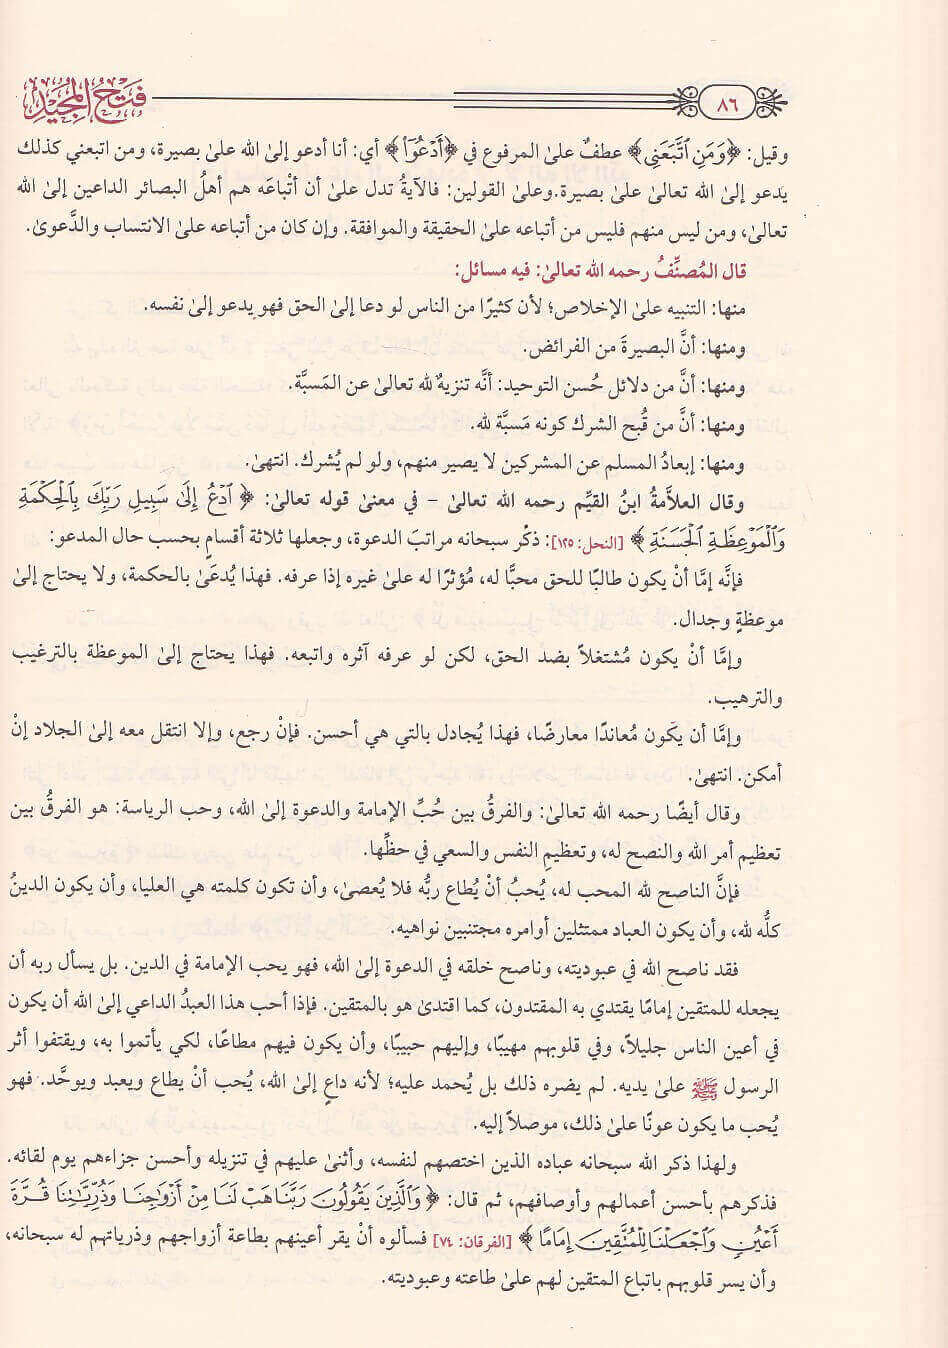 فتح المجيد
٨٦
وقيل: ﴿وَمَنِ ٱتَّبَعَنِي﴾ عطفٌ علىٰ المرفوع في ﴿أَدْعُوٓاْ﴾ أي: أنا أدعو إلىٰ الله علىٰ بصيرة، ومن اتبعني كذلك
يدعو إلىٰ الله تعالىٰ علىٰ بصيرة.وعلىٰ القولين: فالآيةُ تدل علىٰ أن أتْباعَه هم أهلُ البصائر الداعين إلىٰ الله
تعالىٰ، ومن ليس منهم فليس من أتباعه علىٰ الحقيقة والموافقة. وإن كان من أتباعه علىٰ الانتساب والدَّعوىٰ.
قال المُصنِّفُ رحمه الله تعالىٰ: فيه مسائل:
منها: التنبيه علىٰ الإخلاص؛ لأن كثيرًا من الناس لو دعا إلىٰ الحق فهو يدعو إلىٰ نفسه.
ومنها: أنَّ البصيرةَ من الفرائض.
ومنها: أنَّ من دلائل حُسن التوحيد: أنَّه تنزيهٌ لله تعالىٰ عن المَسبَّة.
ومنها: أنَّ من قُبح الشرك كونه مَسبَّة لله.
ومنها: إبعادُ المسلم عن المشركين لا يصير منهم، ولو لم يُشرك. انتهىٰ.
وقال العلاَّمةُ ابنُ القيِّم رحمه الله تعالىٰ – في معنىٰ قوله تعالىٰ: ﴿ ٱدۡعُ إِلَىٰ سَبِيلِ رَبِّكَ بِٱلۡحِكۡمَةِ
وَٱلۡمَوۡعِظَةِ ٱلۡحَسَنَةِ ﴾ [النحل: ١٢٥]: ذكْر سبحانه مراتبَ الدعوة، وجعلها ثلاثة أقسامٍ بحسب حال المدعو:
فإنَّه إمَّا أنْ يكون طالبًا للحق محبًّا له، مُؤثرًا له علىٰ غيره إذا عرفه. فهذا يُدعَىٰ بالحكمة، ولا يحتاج إلىٰ
موعظةٍ وجدال.
وإمَّا أنْ يكون مُشتغلاً بضد الحق، لكن لو عرفه آثره واتبعه. فهذا يحتاج إلىٰ الموعظة بالترغيب
والترهيب.
وإمَّا أن يكون مُعاندًا معارضًا، فهذا يُجادل بالتي هي أحسن. فإنْ رجع، وإلا انتقل معه إلىٰ الجلاد إنْ
أمكن. انتهىٰ.
وقال أيضًا رحمه الله تعالىٰ: والفرقُ بين حُبِّ الإمامة والدعوة إلىٰ الله، وحب الرياسة: هو الفرقُ بين
تعظيم أمر الله والنصح له، وتعظيمِ النفس والسعي في حظِّها.
فإنَّ الناصح لله المحب له، يُحبُ أنْ يُطاع ربُّه فلا يُعصىٰ، وأن تكون كلمته هي العليا، وأن يكون الدينُ
كلُّه لله، وأن يكون العباد ممتثلين أوامره مجتنبين نواهيه.
فقد ناصح الله في عبوديته، وناصح خلقه في الدعوة إلىٰ الله، فهو يحب الإمامة في الدين. بل يسأل ربه أن
يجعله للمتقين إمامًا يقتدي به المقتدون، كما اقتدىٰ هو بالمتقين. فإذا أحب هذا العبدُ الداعي إلىٰ الله أن يكون
في أعين الناس جليلاً، وفي قلوبهم مهيبًا، وإليهم حبيبًا، وأن يكون فيهم مطاعًا، لكي يأتموا به، ويقتفوا أثر
الرسول ﷺ علىٰ يديه. لم يضره ذلك بل يُحمد عليه؛ لأنه داعٍ إلىٰ الله، يُحب أنْ يطاع ويعبد ويوحَّد. فهو
يُحب ما يكون عونًا علىٰ ذلك، موصلاً إليه.
ولهذا ذكر الله سبحانه عباده الذين اختصهم لنفسه، وأثنىٰ عليهم في تنزيله وأحسن جزاءهم يوم لقائه.
فذكرهم بأحسن أعمالهم وأوصافهم، ثم قال: ﴿ وَٱلَّذِينَ يَقُولُونَ رَبَّنَا هَبۡ لَنَا مِنۡ أَزۡوَٰجِنَا وَذُرِّيَّٰتِنَا قُرَّةَ
أَعۡيُنٍ وَٱجۡعَلۡنَا لِلۡمُتَّقِينَ إِمَامًا ﴾ [الفرقان: ٧٤] فسألوه أنْ يقر أعينهم بطاعة أزواجهم وذرياتهم له سبحانه،
وأن يسر قلوبهم باتباع المتقين لهم علىٰ طاعته وعبوديته.